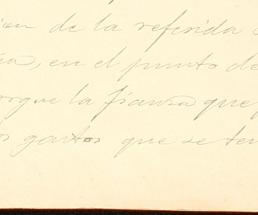 de la referida
en el punto de
la fianza que
gastos que se ten